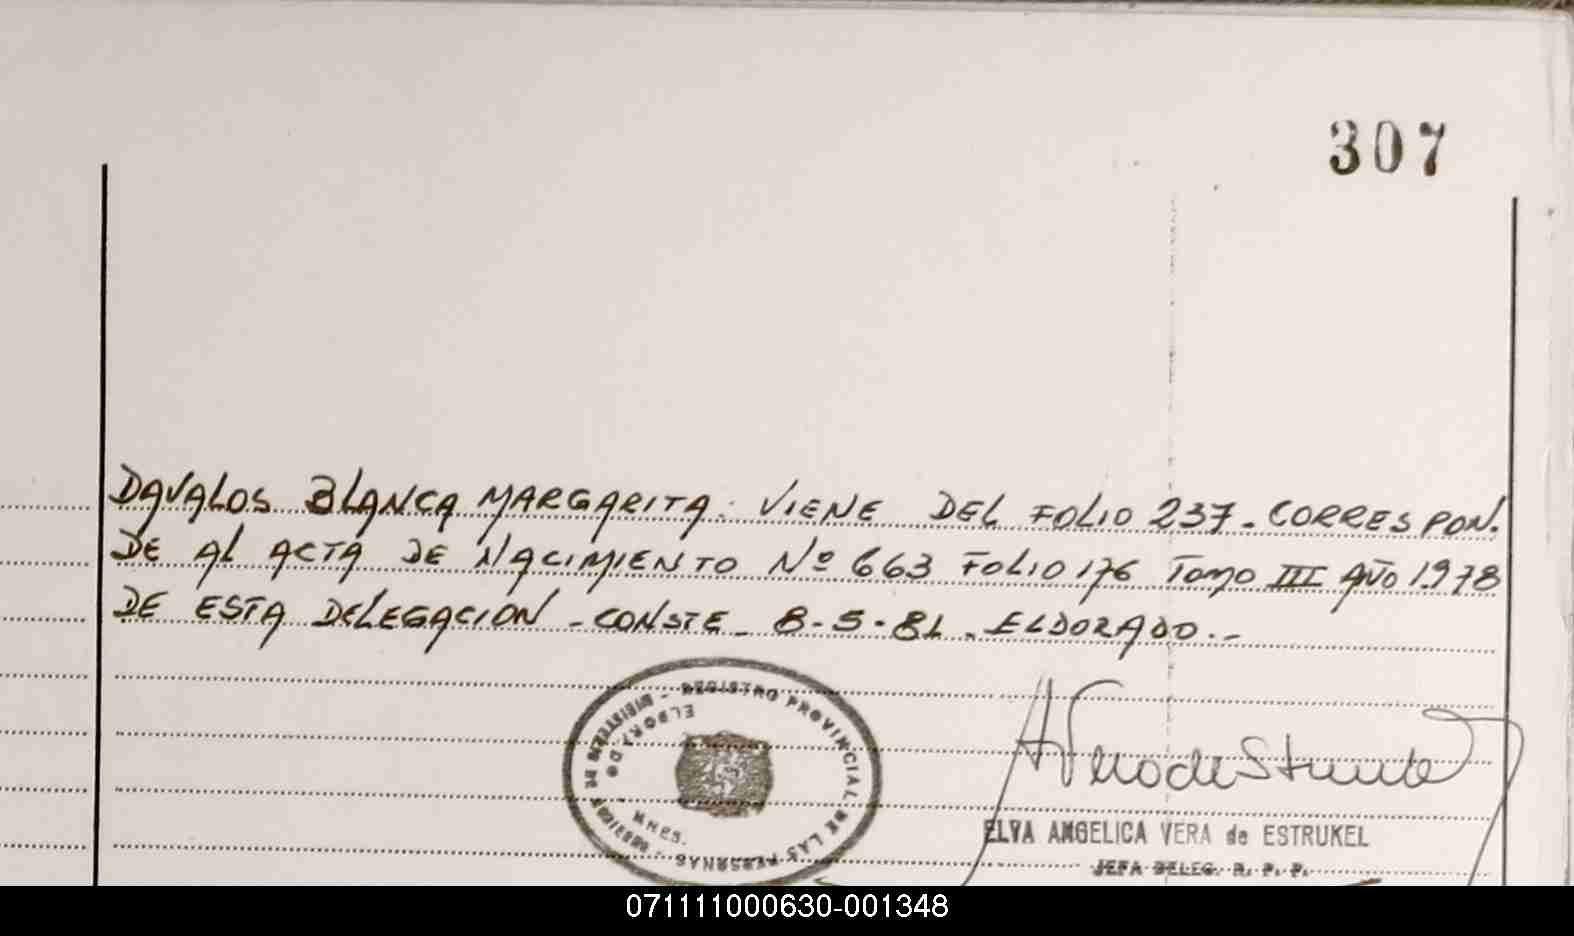 307
DAVALOS BLANCA MARGARITA. VIENE DEL FOLIO 237. CORRESPON.
DE AL ACTA DE NACIMIENTO Nº 663 FOLIO 176 TOMO III AÑO 1978
DE ESTA DELEGACION - CONSTE - 8-5-81. ELDORADO.-
REGISTRO PROVINCIAL DE LAS PERSONAS
ELDORADO
MNES.
ELVA ANGELICA VERA de ESTRUKEL
JEFA DELEG. R. P. P.
071111000630-001348